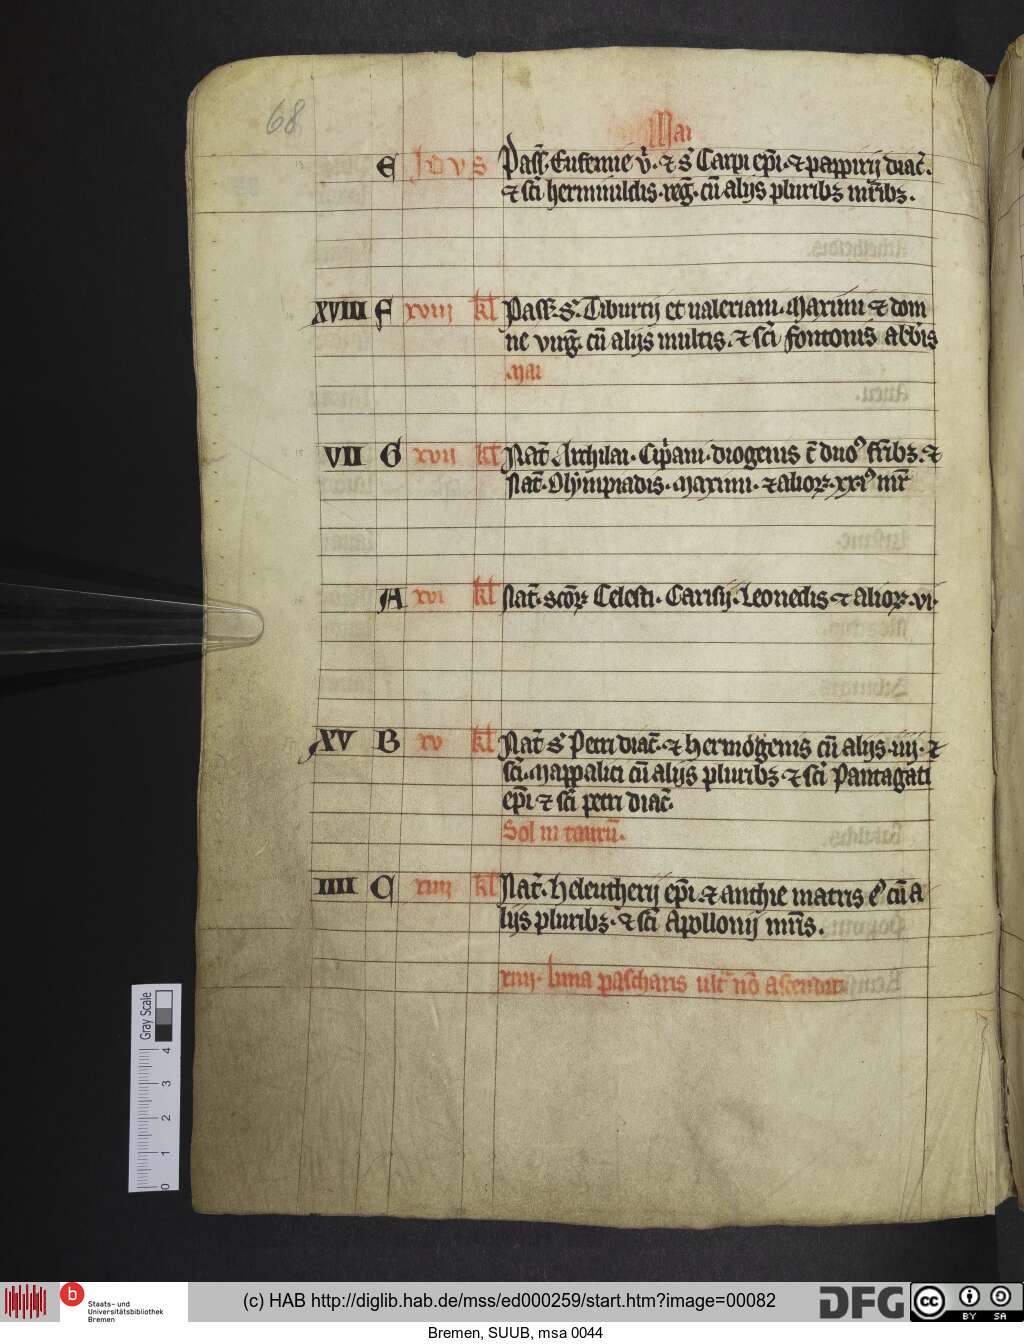 68
Mai
E Idus Pass̄. Eufemie v̄. ⁊ s̄ Carpi ep̄i. ⁊ pappirij diac̄.
⁊ sc̄i herminildis. reḡ. cū alijs pluribꝫ mr̄ibꝫ.
XVIII F xviii kl Pass. s̄. Tiburtij et ualeriani. Maximi ⁊ dom
ne virḡ. cū alijs multis. ⁊ sc̄i fontonis abb̄is
Mai
VII G xvii kl Nat̄ Archilai. Cip̄ani. diogenis ⁊ duoꝰ fr̄ibꝫ. ⁊
Nat̄. Olympiadis. Maximi. ⁊ alioꝝ. xxiꝰ mr̄
A xvi kl Nat̄. scōꝝ Celesti. Carisij. Leonedis ⁊ alioꝝ. vi.
XV B xv kl Nat̄ s̄ Petri diac̄. ⁊ hermogenis cū alijs. iiij. ⁊
sc̄i. Mappalici cū alijs pluribꝫ. ⁊ sc̄i Pantagati
ep̄i ⁊ sc̄i petri diac̄.
Sol in taurū.
IIII C xiiii kl Nat̄. heleutherij ep̄i. ⁊ anthie matris eꝰ cū a
lijs pluribꝫ. ⁊ sc̄i Apollonij mr̄is.
xiiii. luna paschalis ult̄ nō ascendit
Gray Scale
4
3
2
1
0
b
Staats- und
Universitätsbibliothek
Bremen
(c) HAB http://diglib.hab.de/mss/ed000259/start.htm?image=00082
DFG
cc
BY SA
Bremen, SUUB, msa 0044